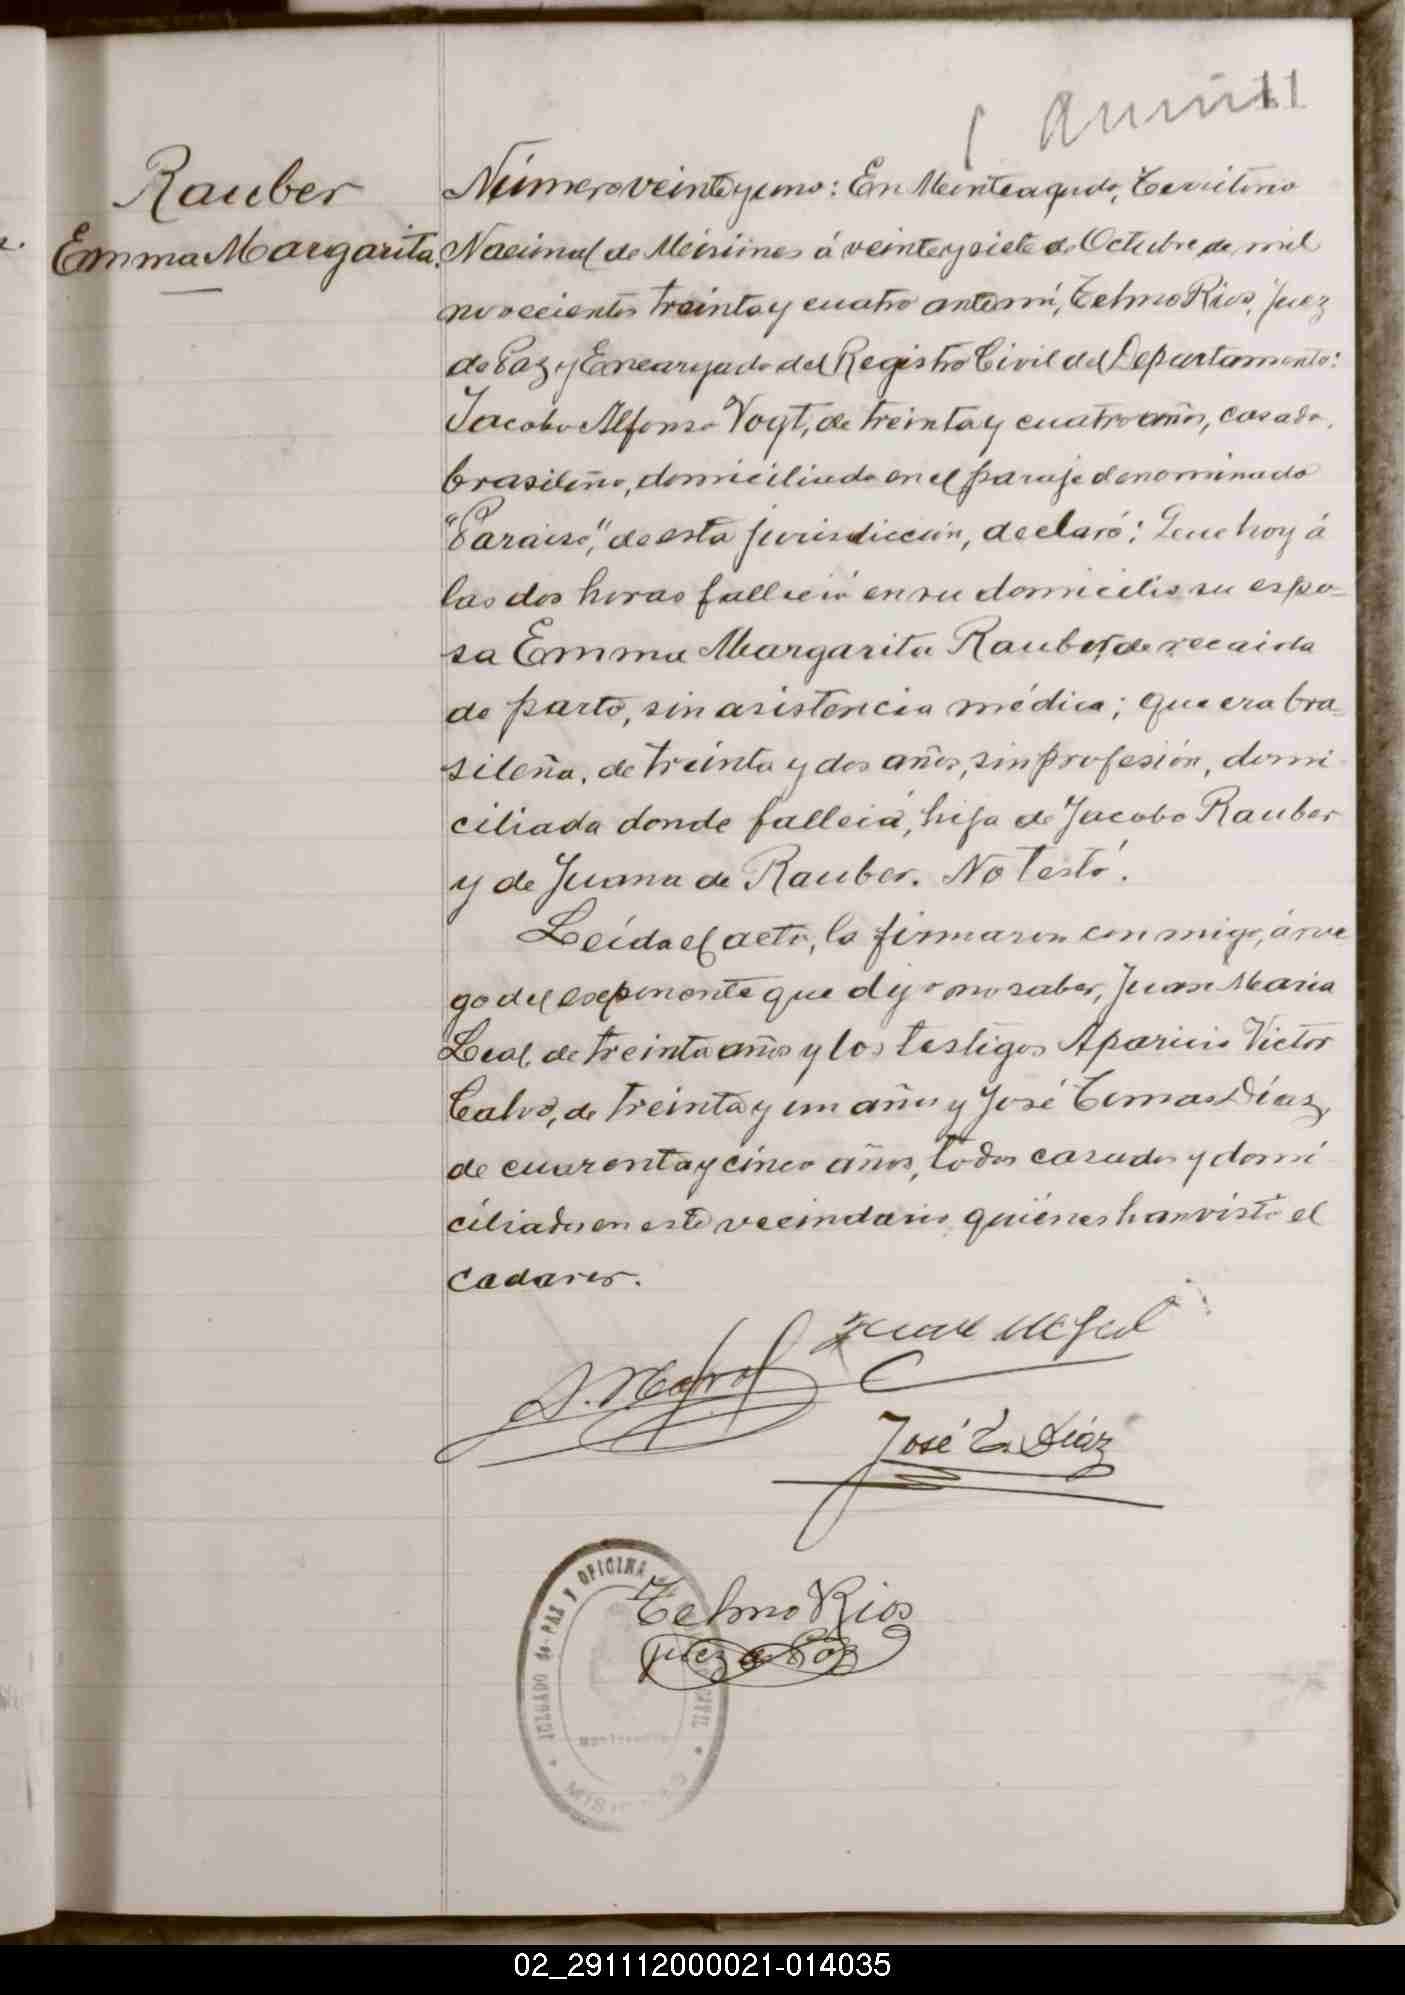 11
Rauber
Emma Margarita.
Número veinte y uno: En Monteagudo, Territorio
Nacional de Misiones á veinte y siete de Octubre de mil
novecientos treinta y cuatro ante mi, Telmo Rios, Juez
de Paz y Encargado del Registro Civil del Departamento:
Jacobo Alfonso Vogt, de treinta y cuatro años, casado,
brasileño, domiciliado en el paraje denominado
"Paraiso", de esta jurisdicción, declaró: Que hoy á
las dos horas falleció en su domicilio su espo-
sa Emma Margarita Rauber, de recaida
de parto, sin asistencia médica; que era bra-
sileña, de treinta y dos años, sin profesión, domi-
ciliada donde falleció, hija de Jacobo Rauber
y de Juana de Rauber. No testó.
Leída el acta, la firmaron conmigo, á rue-
go del exponente que dijo no saber, Juan Maria
Leal, de treinta años y los testigos Aparicio Victor
Calvo, de treinta y un años y José Tomas Díaz,
de cuarenta y cinco años, todos casados y domi-
ciliados en este vecindario quiénes han visto el
cadaver.
José T. Díaz
Telmo Rios
Juez de Paz
JUZGADO de PAZ Y OFICINA CIVIL
MISIONES
02_291112000021-014035